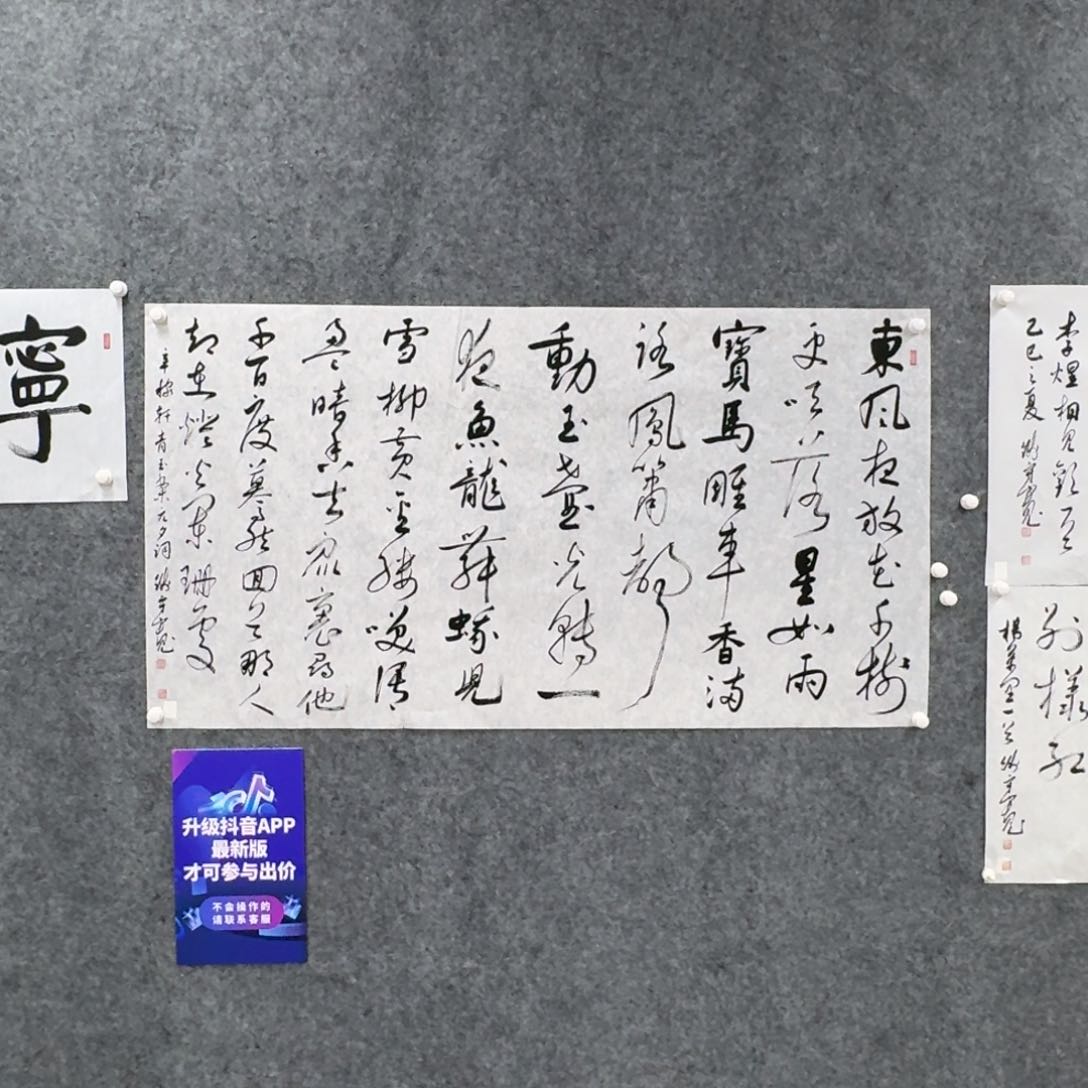 李煜相見歡
乙巳之夏
別樣紅
楊萬里一首
東風夜放花千樹
更吹落星如雨
寶馬雕車香滿
路鳳簫聲
動玉壺光轉一
夜魚龍舞蛾兒
雪柳黃金縷笑語
盈〻暗香去眾裏尋他
千百度驀然回首那人
却在燈火闌珊處
辛稼軒青玉案元夕詞
寧
升级抖音APP
最新版
才可参与出价
不会操作的
请联系客服